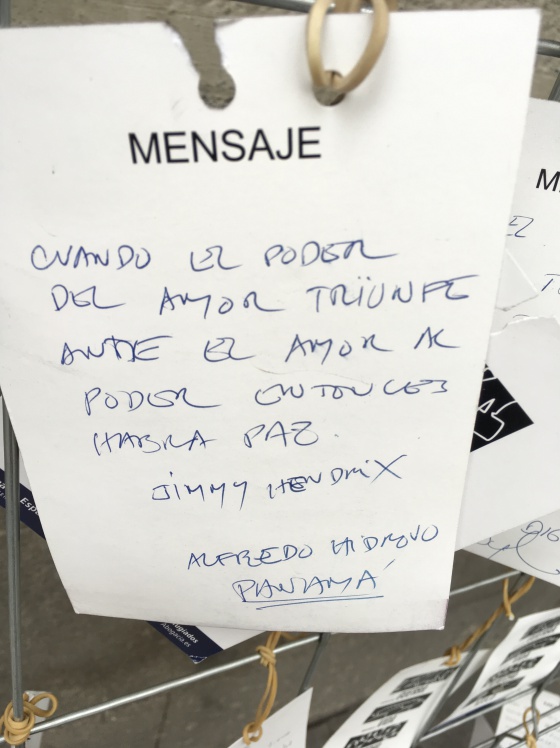 MENSAJE
CUANDO EL PODER
DEL AMOR TRIUNFE
ANTE EL AMOR AL
PODER ENTONCES
HABRA PAZ.
JIMMY HENDRIX
ALFREDO HIDROVO
PANAMÁ
M
EZ
Abogacía.es